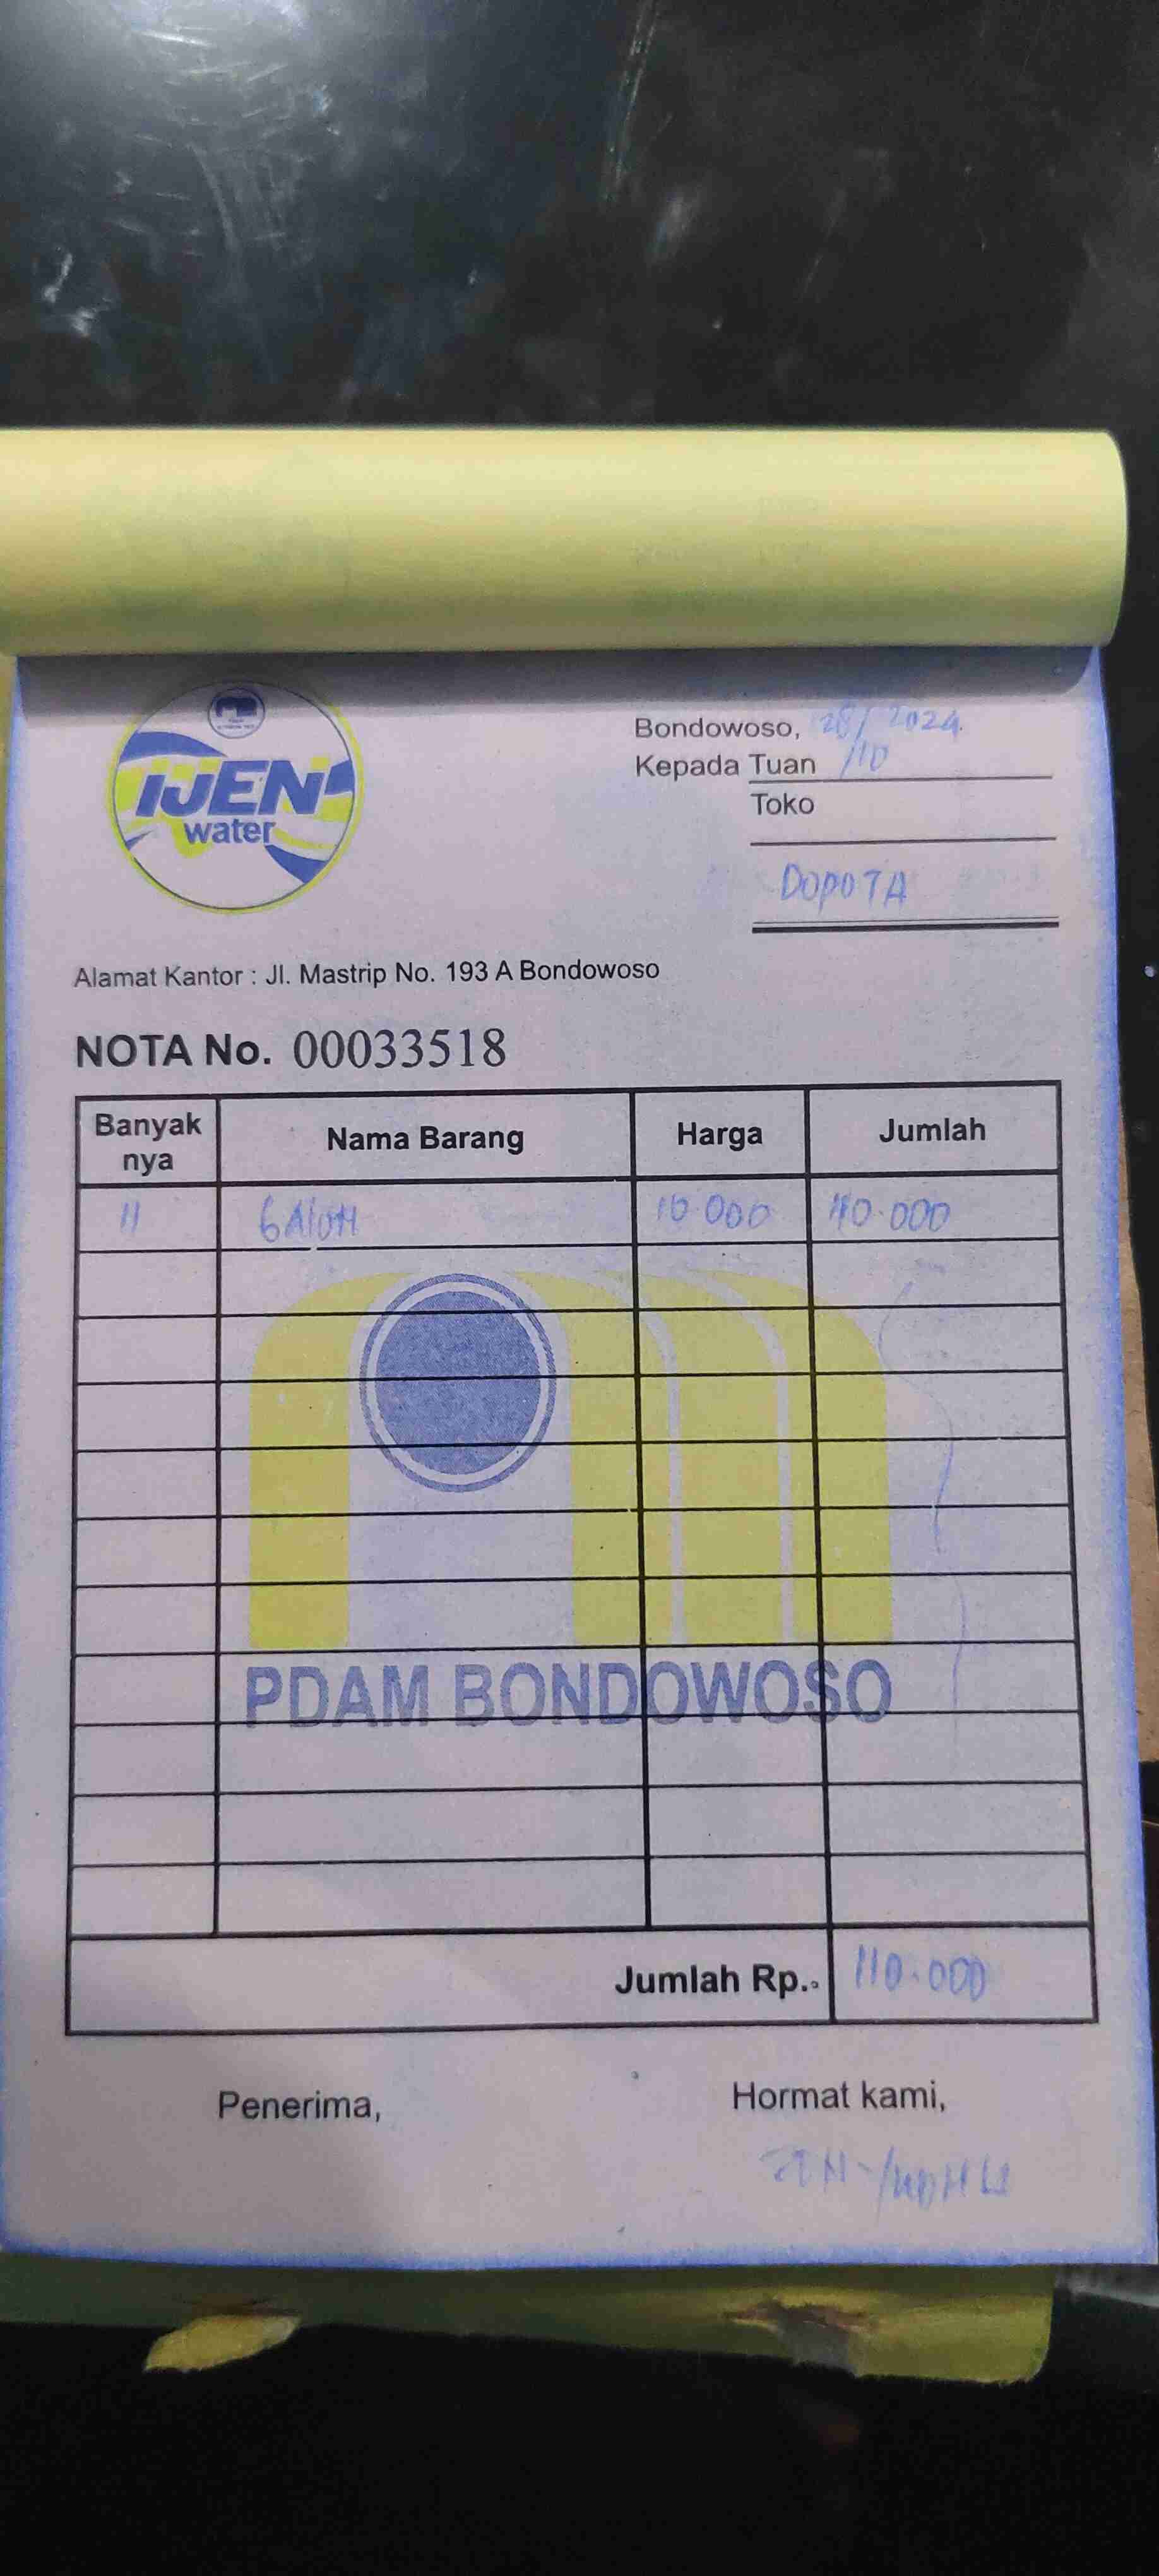 IJEN
water
Bondowoso, 28/10 2024.
Kepada Tuan
Toko
DOPOTA
Alamat Kantor : Jl. Mastrip No. 193 A Bondowoso
NOTA No. 00033518
Banyak nya Nama Barang Harga Jumlah
11 GAlon 10.000 110.000
PDAM BONDOWOSO
Jumlah Rp. 110.000
Penerima, Hormat kami,